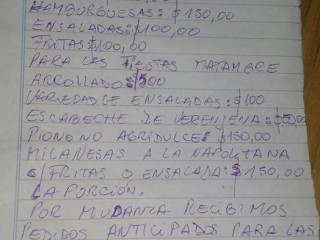 HAMBURGUESAS: $150,00
ENSALADAS: $100,00
FRITAS: $100,00
PARA LAS FIESTAS MATAMBRE
ARROLLADO $500
VARIEDAD DE ENSALADAS: $100
ESCABECHE DE BERENJENA:
PIONONO AGRIDULCE: $150,00
MILANESAS A LA NAPOLITANA
C/FRITAS O ENSALADA: $150,00
LA PORCIÓN.
POR MUDANZA RECIBIMOS
PEDIDOS ANTICIPADOS PARA LAS